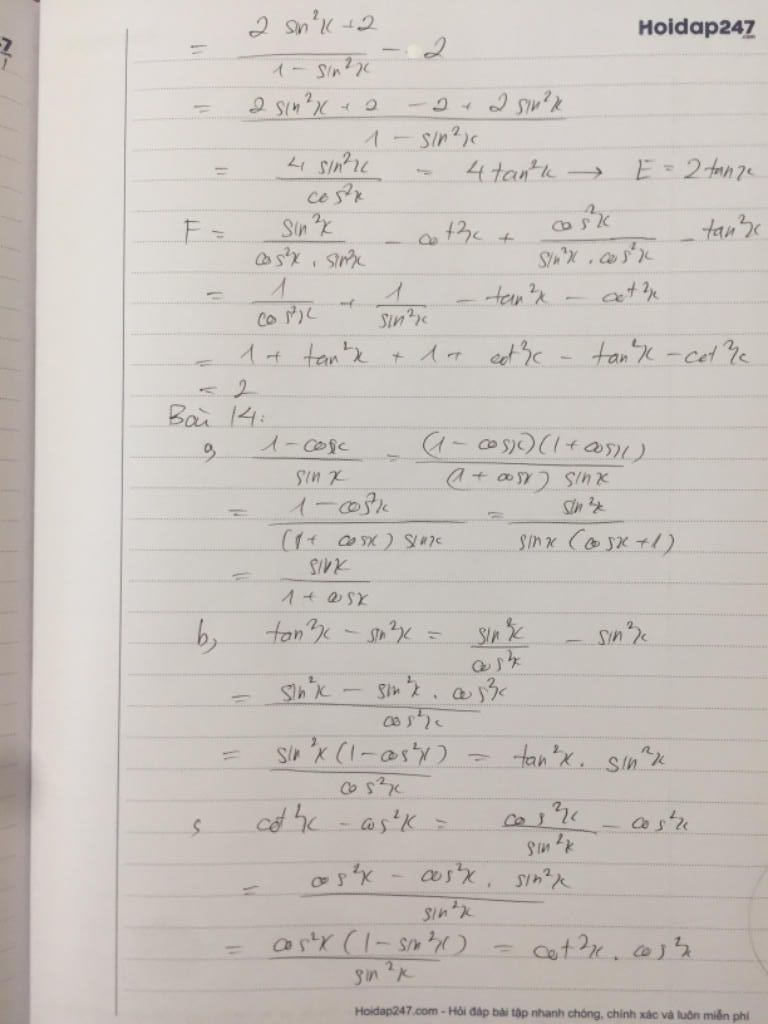 Hoidap247
.com
= (2 sin²x + 2)/(1 - sin²x) - 2
= (2 sin²x + 2 - 2 + 2 sin²x)/(1 - sin²x)
= (4 sin²x)/(cos²x) = 4 tan²x → E = 2 tanx
F = (sin²x)/(cos²x . sin²x) - cot²x + (cos²x)/(sin²x . cos²x) - tan²x
= 1/(cos²x) + 1/(sin²x) - tan²x - cot²x
= 1 + tan²x + 1 + cot²x - tan²x - cot²x
= 2
Bài 14:
a, (1 - cosx)/(sin x) = ((1 - cosx)(1 + cosx))/((1 + cosx) sinx)
= (1 - cos²x)/((1 + cosx) sinx) = (sin²x)/(sinx (cosx + 1))
= (sinx)/(1 + cosx)
b, tan²x - sin²x = (sin²x)/(cos²x) - sin²x
= (sin²x - sin²x . cos²x)/(cos²x)
= (sin²x (1 - cos²x))/(cos²x) = tan²x . sin²x
c, cot²x - cos²x = (cos²x)/(sin²x) - cos²x
= (cos²x - cos²x . sin²x)/(sin²x)
= (cos²x (1 - sin²x))/(sin²x) = cot²x . cos²x
Hoidap247.com - Hỏi đáp bài tập nhanh chóng, chính xác và luôn miễn phí